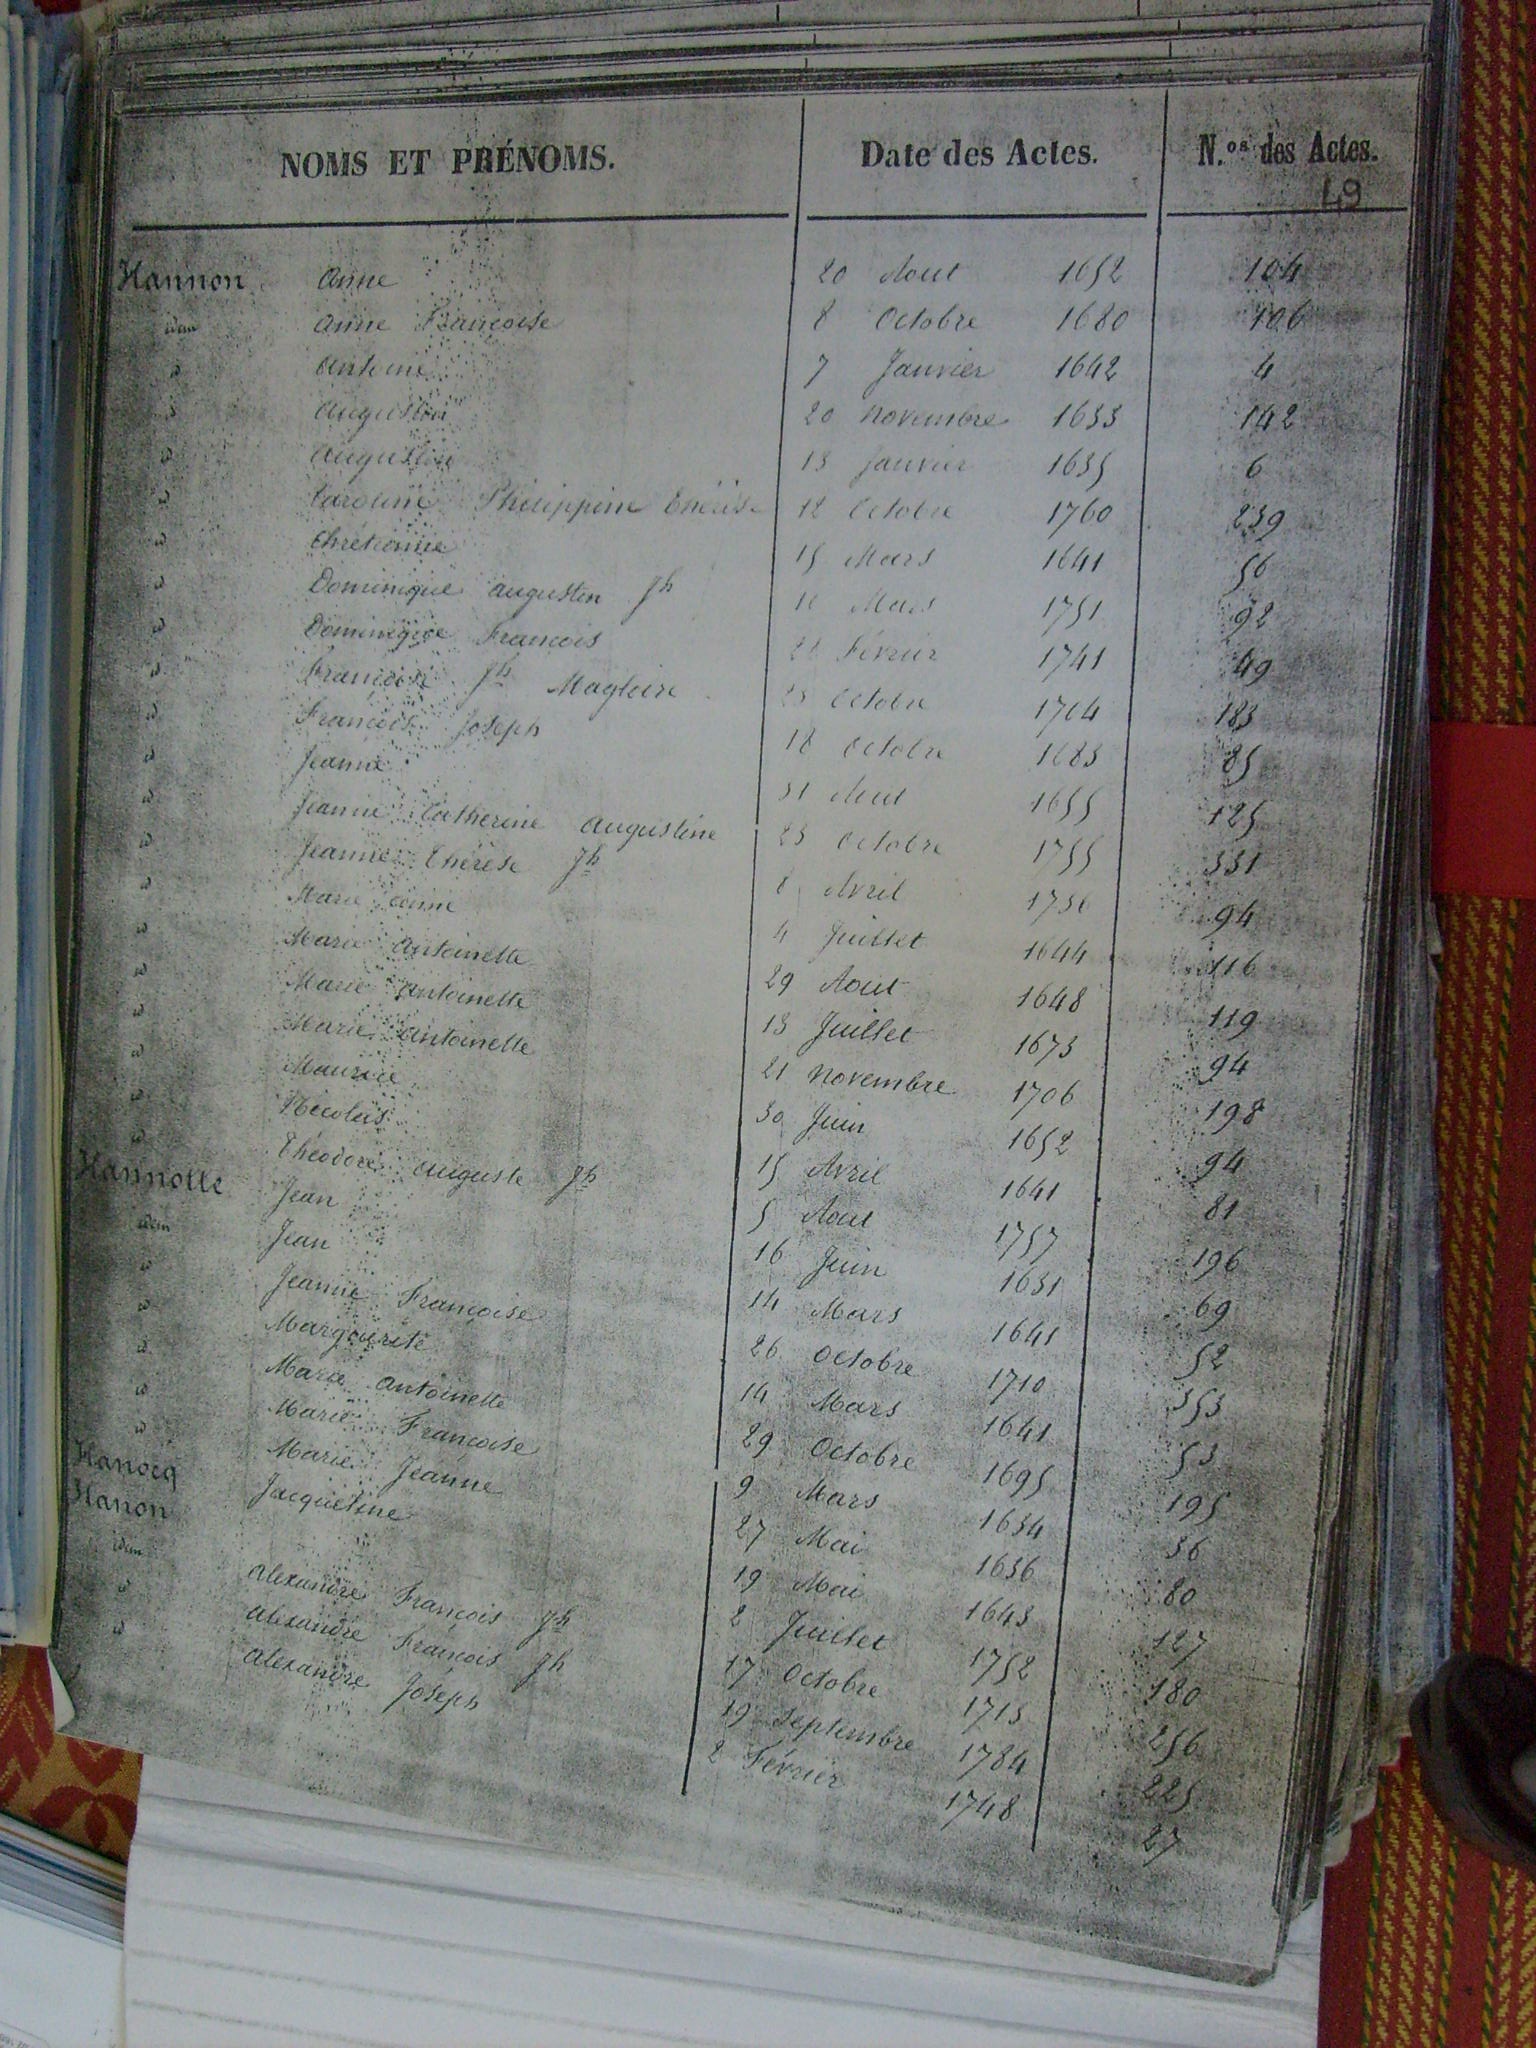 NOMS ET PRÉNOMS. Date des Actes. N.os des Actes.
49
Hannon Anne 20 Aout 1652 104
idem Anne Françoise 8 Octobre 1680 106
id Antoine 7 Janvier 1642 4
id Augustin 20 novembre 1633 142
id Augustin 13 Janvier 1635 6
id Caroline Philippine Thérèse 12 Octobre 1760 239
id Chrétienne 15 Mars 1641 56
id Dominique Augustin Jh Mars 1751 92
id Dominique François Février 1741 49
id Jh Magloire 23 Octobre 1704 183
id François Joseph 18 Octobre 1683 85
id Jeanne 31 Aout 1655 125
id Jeanne Catherine Augustine 23 Octobre 1755 331
id Jeanne Thérèse Jh 8 Avril 1736 94
id Marie Anne 4 Juillet 1644 116
id Marie Antoinette 29 Aout 1648 119
id Marie Antoinette 13 Juillet 1673 94
id Marie Antoinette 21 novembre 1706 198
id Maurice 30 Juin 1652 94
id Nicolas 15 Avril 1641 81
id Théodore Auguste Jh 5 Aout 1757 196
Hannotte Jean 16 Juin 1631 69
idem Jean 14 Mars 1641 52
id Jeanne Françoise 26 Octobre 1710 353
id Marguerite 14 Mars 1641 53
id Marie Antoinette 29 Octobre 1695 195
id Marie Françoise 9 Mars 1634 36
id Marie Jeanne 27 Mai 1636 80
Hanocq Jacqueline 19 Mai 1643 127
Hanon 2 Juillet 1752 180
idem Alexandre François Jh 17 Octobre 1713 256
id Alexandre François Jh 19 septembre 1784 225
id Alexandre Joseph 2 Février 1748 27